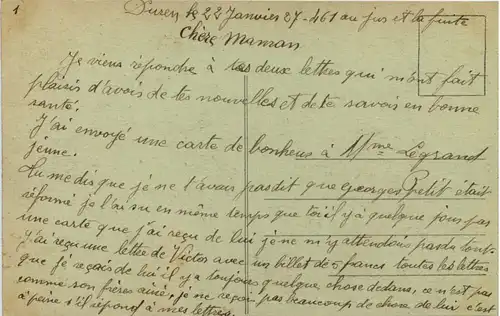 1
Duren le 22 Janvier 27 - 461 au jus et la fuite
Chère Maman
Je viens répondre à tes deux lettres qui m'ont fait
plaisir d'avoir de tes nouvelles et de te savoir en bonne
santé.
J'ai envoyé une carte de bonheur à Mme Legrand
jeune.
Tu me dis que je ne t'avais pas dit que Georges Petit était
réformé je l'ai su en même temps que toi il y a quelque jours par
une carte que j'ai reçu de lui je ne m'y attendais pas du tout.
j'ai reçu une lettre de Victor avec un billet de 5 francs toutes les lettres
que je reçois de lui il y a toujours quelque chose dedans, ce n'est pas
comme son frère ainé, je ne reçois pas beaucoup de chose de lui c'est
à peine s'il répond à mes lettres.